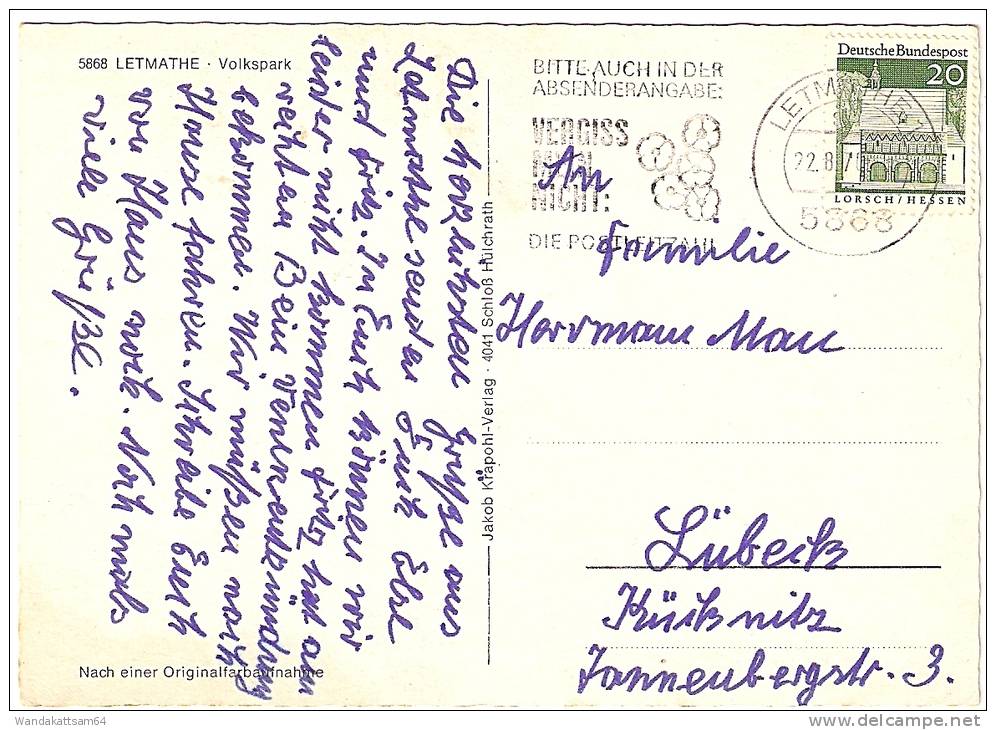 5868 LETMATHE · Volkspark
Die herzlichsten Grüße aus
Letmathe senden Euch Else
und Fritz. Zu Euch können wir
leider nicht kommen Fritz hat am
rechten Bein Venenentzündung
bekommen. Wir müßen nach
Hause fahren. Schreibe Euch
von Haus noch. Noch mals
viele Grüße.
Nach einer Originalfarbaufnahme
Jakob Krapohl-Verlag · 4041 Schloß Hülchrath
BITTE AUCH IN DER
ABSENDERANGABE:
VERGISS
MEIN
NICHT:
DIE POSTLEITZAHL
LETMATHE
22.8.7
5868
Deutsche Bundespost
20
LORSCH/HESSEN
An
Familie
Herrmann Mau
Lübeck
Kücknitz
Tannenbergstr. 3.
Wandakattsam64
delcampe.net